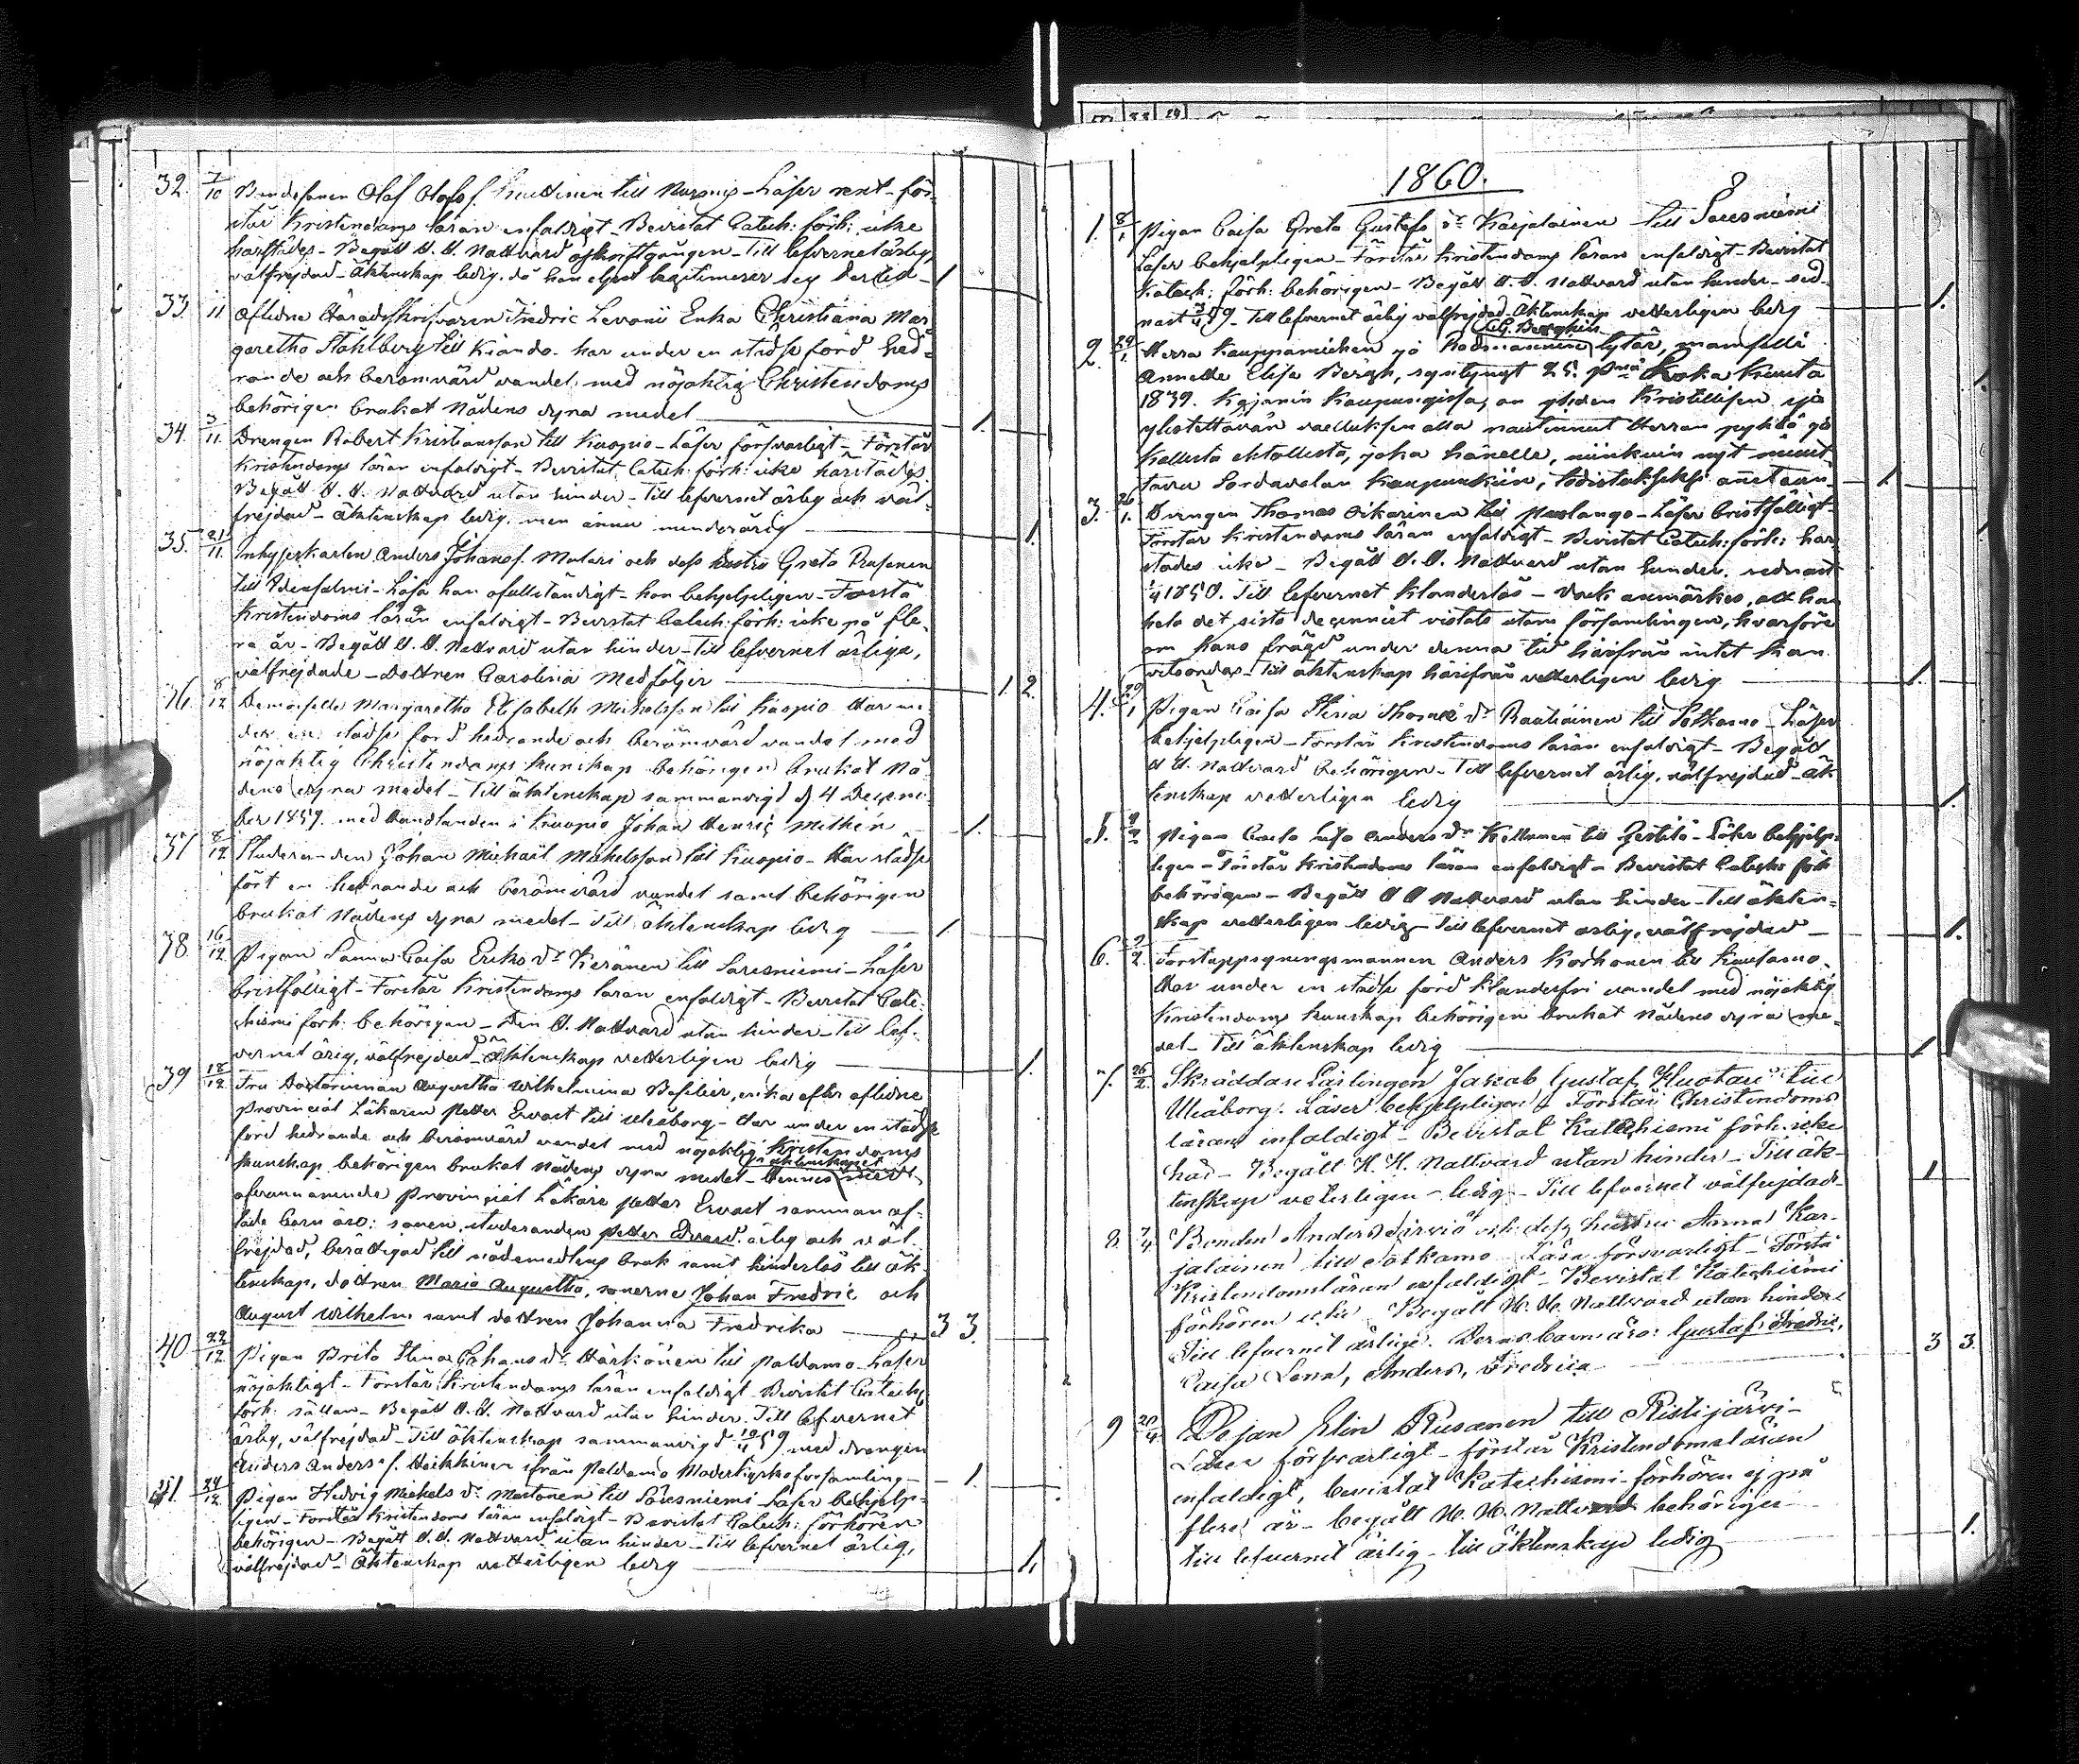 32. 7/10 Bondesonen Olof Olofs s. Huttinen till Nurmis - Läser rent - för-
står Kristendoms läran enfaldigt - Bevistat Catech: förh: icke
härstädes - Begått H. H. Nattvard - Till lefvernet ärlig,
välfrejdad - Äktenskap ledig, då han eljest legitimerar sig dertill - 1
33. 11 Aflidne Häradsskrifvaren Fredric Levonii Enka Christiana Mar-
garetha Ståhlberg till Kiando - har under en städse förd hed-
rande och berömvärd vandel med nöjaktig Christendoms
behörigen brukat Nådens dyra medel 1.
34. 3/11 Drengen Robert Kristiansson till Kuopio - Läser försvarligt - Förstår
Kristendoms läran enfaldigt - Bevistat Catech: förh: icke härstädes
Begått H. H. Nattvard utan hinder - Till lefvernet ärlig och väl-
frejdad - Äktenskap ledig, men ännu minderårig 1.
35. 21/11 Inhyseskarlen Anders Johans s. Matari och dess hustru Greta
till Idensalmi - Läsa han ofullständigt - hon behjelpligen - Förstå
Kristendoms läran enfaldigt - Bevistat Catech: förh: icke på fle-
ra år - Begått H. H. Nattvard utan hinder - Till lefvernet ärlige,
välfrejdade - Dottren Carolina medföljer 1 2.
36. 8/12 Demoiselle Margaretha Elisabeth Michelsson till Kuopio Har un-
der en städse förd hedrande och berömvärd vandel med
nöjaktig Christendoms kunskap behörigen brukat Nå-
dens dyra medel - Till äktenskap sammanvigd d. 4 Decem-
ber 1859 med Handlanden i Kuopio Johan Henric Methén 1.
37 8/12 Studeranden Johan Michaël Michelsson till Kuopio - Har städse
fört en hedrande och berömvärd vandel samt behörigen
brukat Nådens dyra medel - Till äktenskap ledig 1
38 16/12 Pigan Sanna Caisa Eriks dr Keränen till Säresniemi - Läser
bristfälligt - Förstår Kristendoms läran enfaldigt - Bevistat Cate-
chismi förh: behörigen - Den H. Nattvard utan hinder - till lef-
vernet ärlig, välfrejdad - Äktenskap vetterligen ledig 1.
39 18/12 Fru Doctorinnan Augustha Wilhelmina enka efter aflidne
Provincial Läkaren Petter Ervast till Uleåborg - Har under en städse
förd hedrande och berömvärd vandel med nöjaktig Kristendoms
kunskap behörigen brukat Nådens dyra medel - Hennes i äktenskapet med
ofvannämnde Provincial Läkare Petter Ervast samman af-
lade barn äro: sonen, studeranden Petter Edvard, ärlig och väl-
frejdad, berättigad till nådemedlens bruk samt hinderlös till äk-
tenskap, dottren Maria Augustha, sönerne Johan Fredric och
August Wilhelm samt dottren Johanna Fredrika 3 3.
40 22/12 Pigan Brita Stina Johans dr Härkönen till Paldamo - Läser
nöjaktigt - Förstår Kristendoms läran enfaldigt - Bevistat Catech:
förh: sällan - Begått H. H. Nattvard utan hinder - Till lefvernet
ärlig, välfrejdad - Till äktenskap sammanvigd 59 med drengen
Anders Anders s. Heikkinen ifrån Paldamo Moderkyrko församling - 1.
41. 24/12 Pigan Hedvig Michels dr Mustonen till Säresniemi - Läser behjelp-
ligen - Förstår Kristendoms läran enfaldigt - Bevistat Catech: förhören
behörigen - Begått H. H. Nattvard utan hinder - Till lefvernet ärlig,
välfrejdad - Äktenskap vetterligen ledig 1.
1860.
1. 8/1 Pigan Caisa Greta Gustafs dr Karjalainen till Säresniemi
Läser behjelpligen - Förstår Kristendoms läran enfaldigt - Bevistat
Katech: förh: behörigen - Begått H. H. Nattvard utan hinder - sed-
nast 59 - Till lefvernet ärlig välfrejdad - Äktenskap vetterligen ledig 1.
2. 24/1 Herra Kauppamiehen ja Rådmannin C.G. Berghin tytär, mamselli
Annette Elisa Bergh, syntynyt 25. pnä Loka Kuuta
1839. Kajanin Kaupungissa, on yhden Kristillisen ja
ylistettävän vaelluksen alla nautinnut Herran pyhää ja
Kallista ehtollista, joka hänelle, niinkuin nyt muut-
tava Sordavalan Kaupunkiin, todistukseksi annetaan 1.
3. 26/1. Drengen Thomas Oikarinen till - Läser bristfälligt -
Förstår Kristendoms läran enfaldigt - Bevistat Catech: förh: här-
städes icke - Begått H. H. Nattvard utan hinder, sednast
1850. Till lefvernet klanderlös - Dock anmärkes, att han
hela det sista decenniet vistats utom församlingen, hvarföre
om hans frägd under denna tid härifrån intet kan
vitsordas - Till äktenskap härifrån vetterligen ledig 1.
4. 29/1 Pigan Caisa Stina Thomæ dr Raatiainen till Sotkamo - Läser
behjelpligen - Förstår Kristendoms läran enfaldigt - Begått
H. H. Nattvard behörigen - Till lefvernet ärlig, välfrejdad - äk-
tenskap vetterligen ledig 1.
5. Pigan Caisa Lisa Anders dr Kettunen till Pestilä - Läser behjelp-
ligen - Förstår Kristendoms läran enfaldigt - Bevistat Catech: förh:
behörigen - Begått H H Nattvard utan hinder - Till äkten-
skap vetterligen ledig - Till lefvernet ärlig, välfrejdad 1.
6. 9/2. Forstuppsyningsmannen Anders Korhonen till Kuusamo.
Har under en städse förd klanderfri vandel med nöjaktig
Kristendoms kunskap behörigen brukat Nådens dyra me-
del - Till äktenskap ledig 1
7. 26/2. Skräddare Lärlingen Jakob Gustaf Huotari till
Uleåborg. Läser behjelpligen - Förstår Christendoms
läran enfaldigt - Bevistat Katechismi förh: icke
här - Begått H. H. Nattvard utan hinder - Till äk-
tenskap veterligen - ledig - Till lefvernet välfrejdad - 1
8. 7/4 Bonden Anders Sirviö och dess hustru Anna Kar-
jalainen till Sotkamo Läsa försvarligt - Förstå
Kristendomsläran enfaldigt - Bevistat Katechismi
förhören icke - Begått H. H. Nattvard utan hinder
Till lefvernet ärlige. Deras barn äro: Gustaf Fredric,
Caisa Lena, Anders, Fredrica 3 3.
9 20/4 Pejan Elin Rusanen till Ristijärvi -
Läser försvarligt - förstår Kristendomsläran
enfaldigt, bevistat Katechismi-förhören ej på
flere år - begått H. H. Nattvard behörigen -
till lefvernet ärlig - till äktenskap ledig 1.